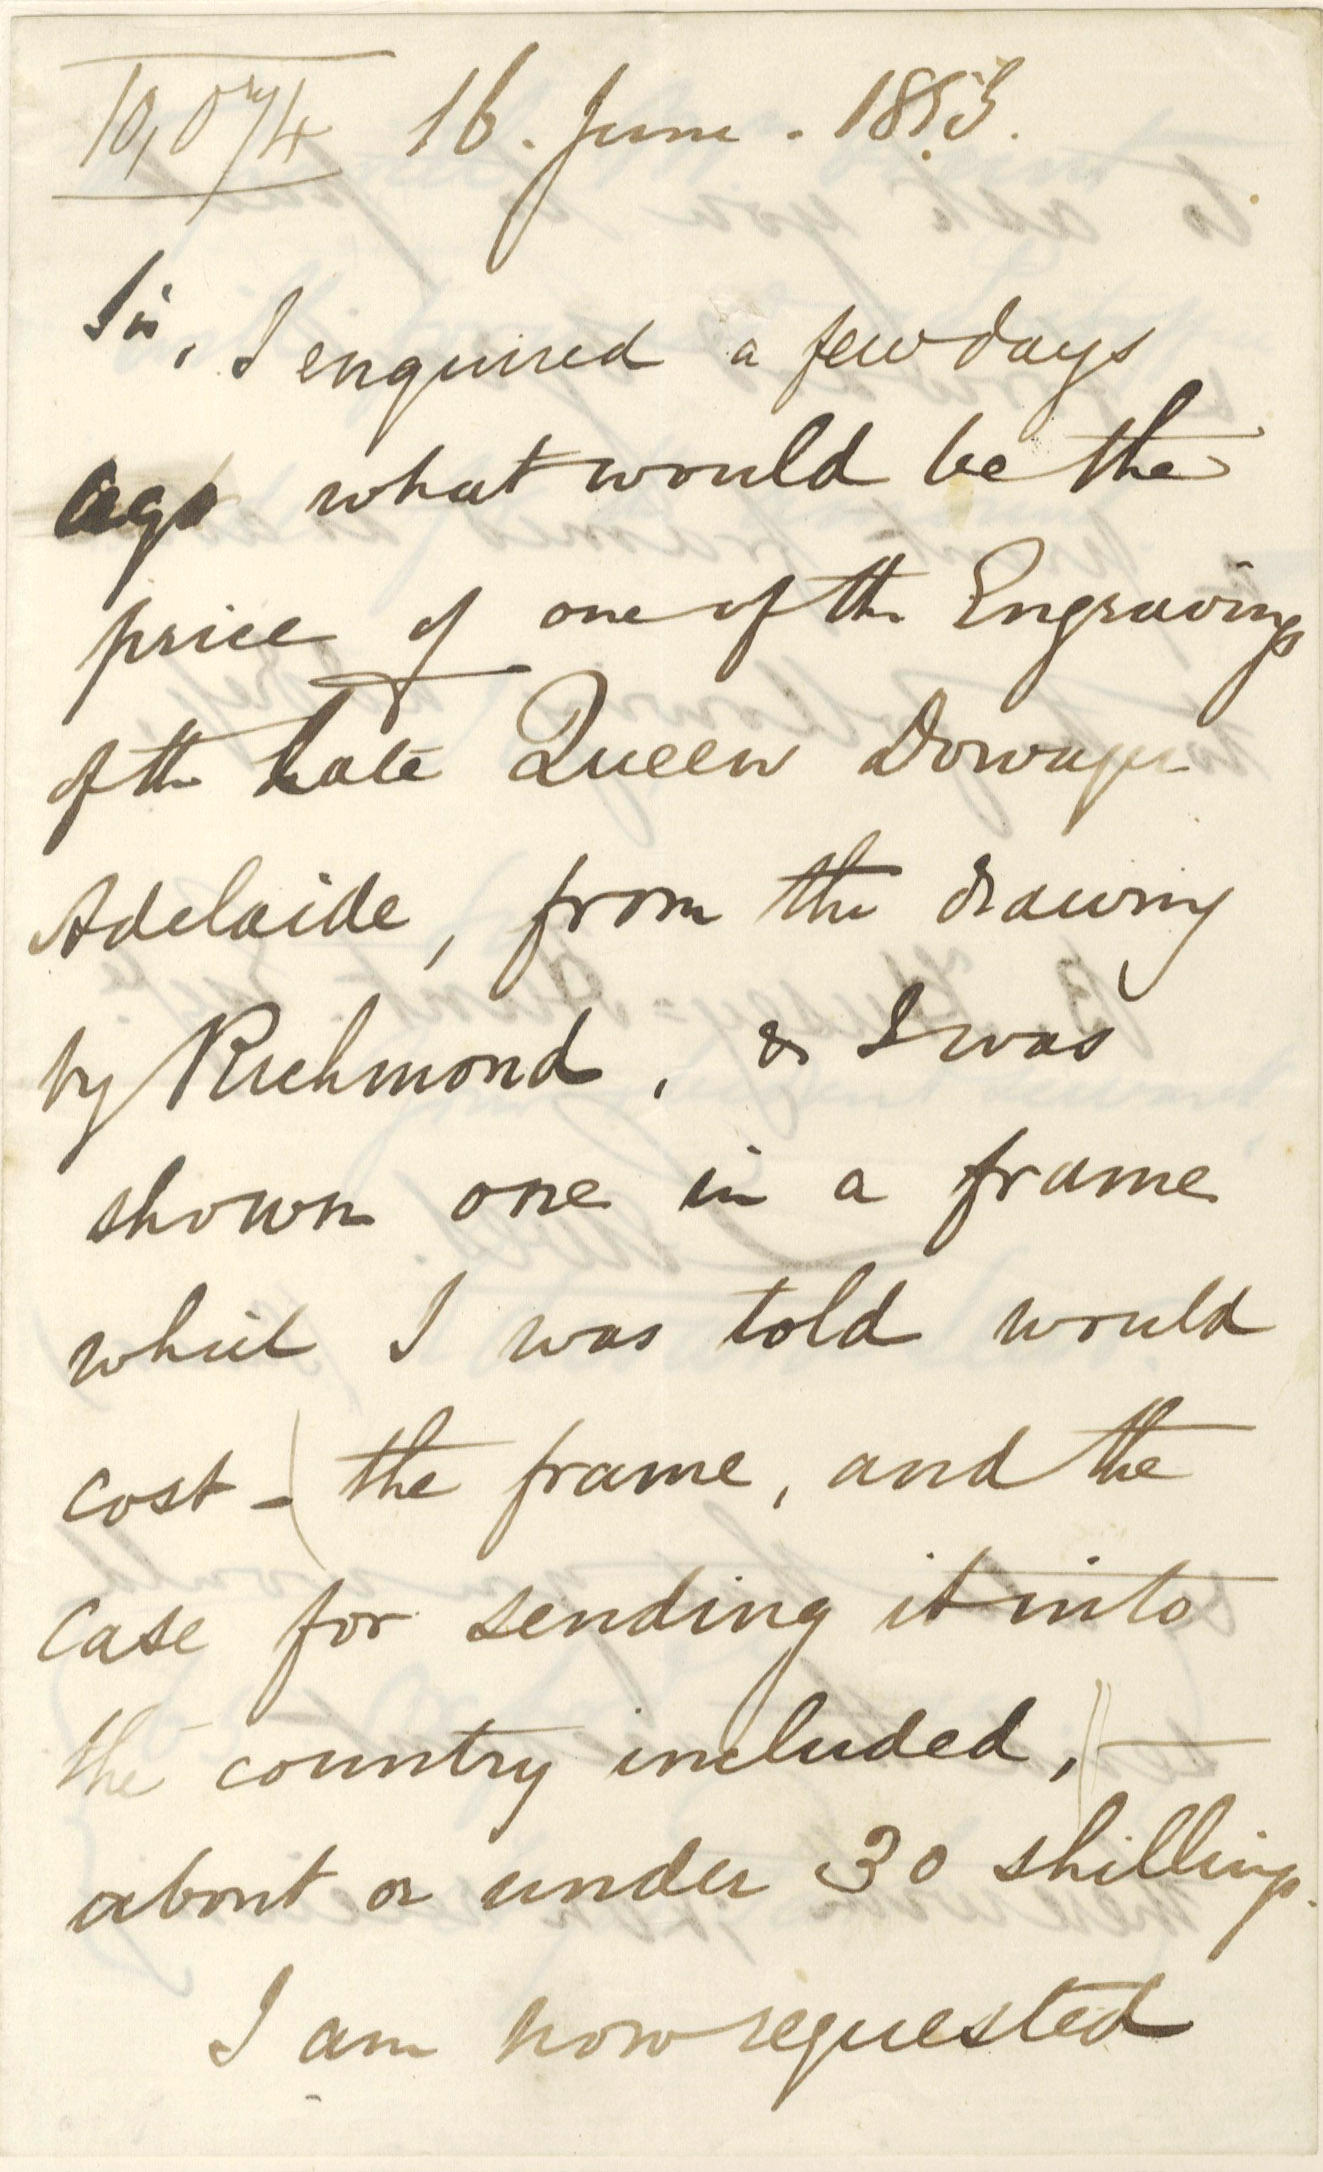 16. June. 1853.
Sir, I enquired a few days
ago what would be the
price of one of the Engravings
of the Late Queen Dowager
Adelaide, from the drawing
by Richmond, & I was
shown one in a frame
which I was told would
cost - (the frame, and the
case for sending it into
the country included,) —
about or under 30 shillings.
I am now requested